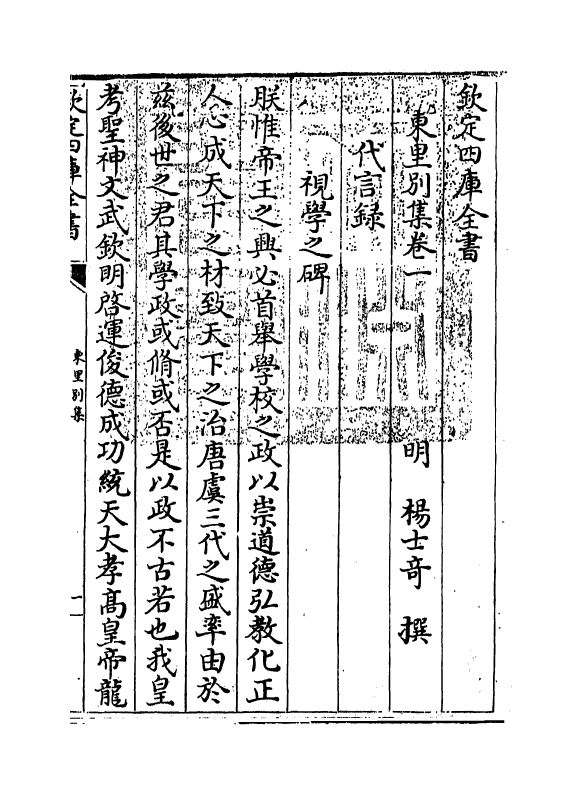 欽定四庫全書
東里別集卷一
明 楊士竒 撰
代言録
視學之碑
朕惟帝王之興必首舉學校之政以崇道德弘教化正
人心成天下之材致天下之治唐虞三代之盛率由於
兹後世之君其學政或脩或否是以政不古若也我皇
考聖神文武欽明啓運俊德成功統天大孝髙皇帝龍
欽定四庫全書
東里別集
一